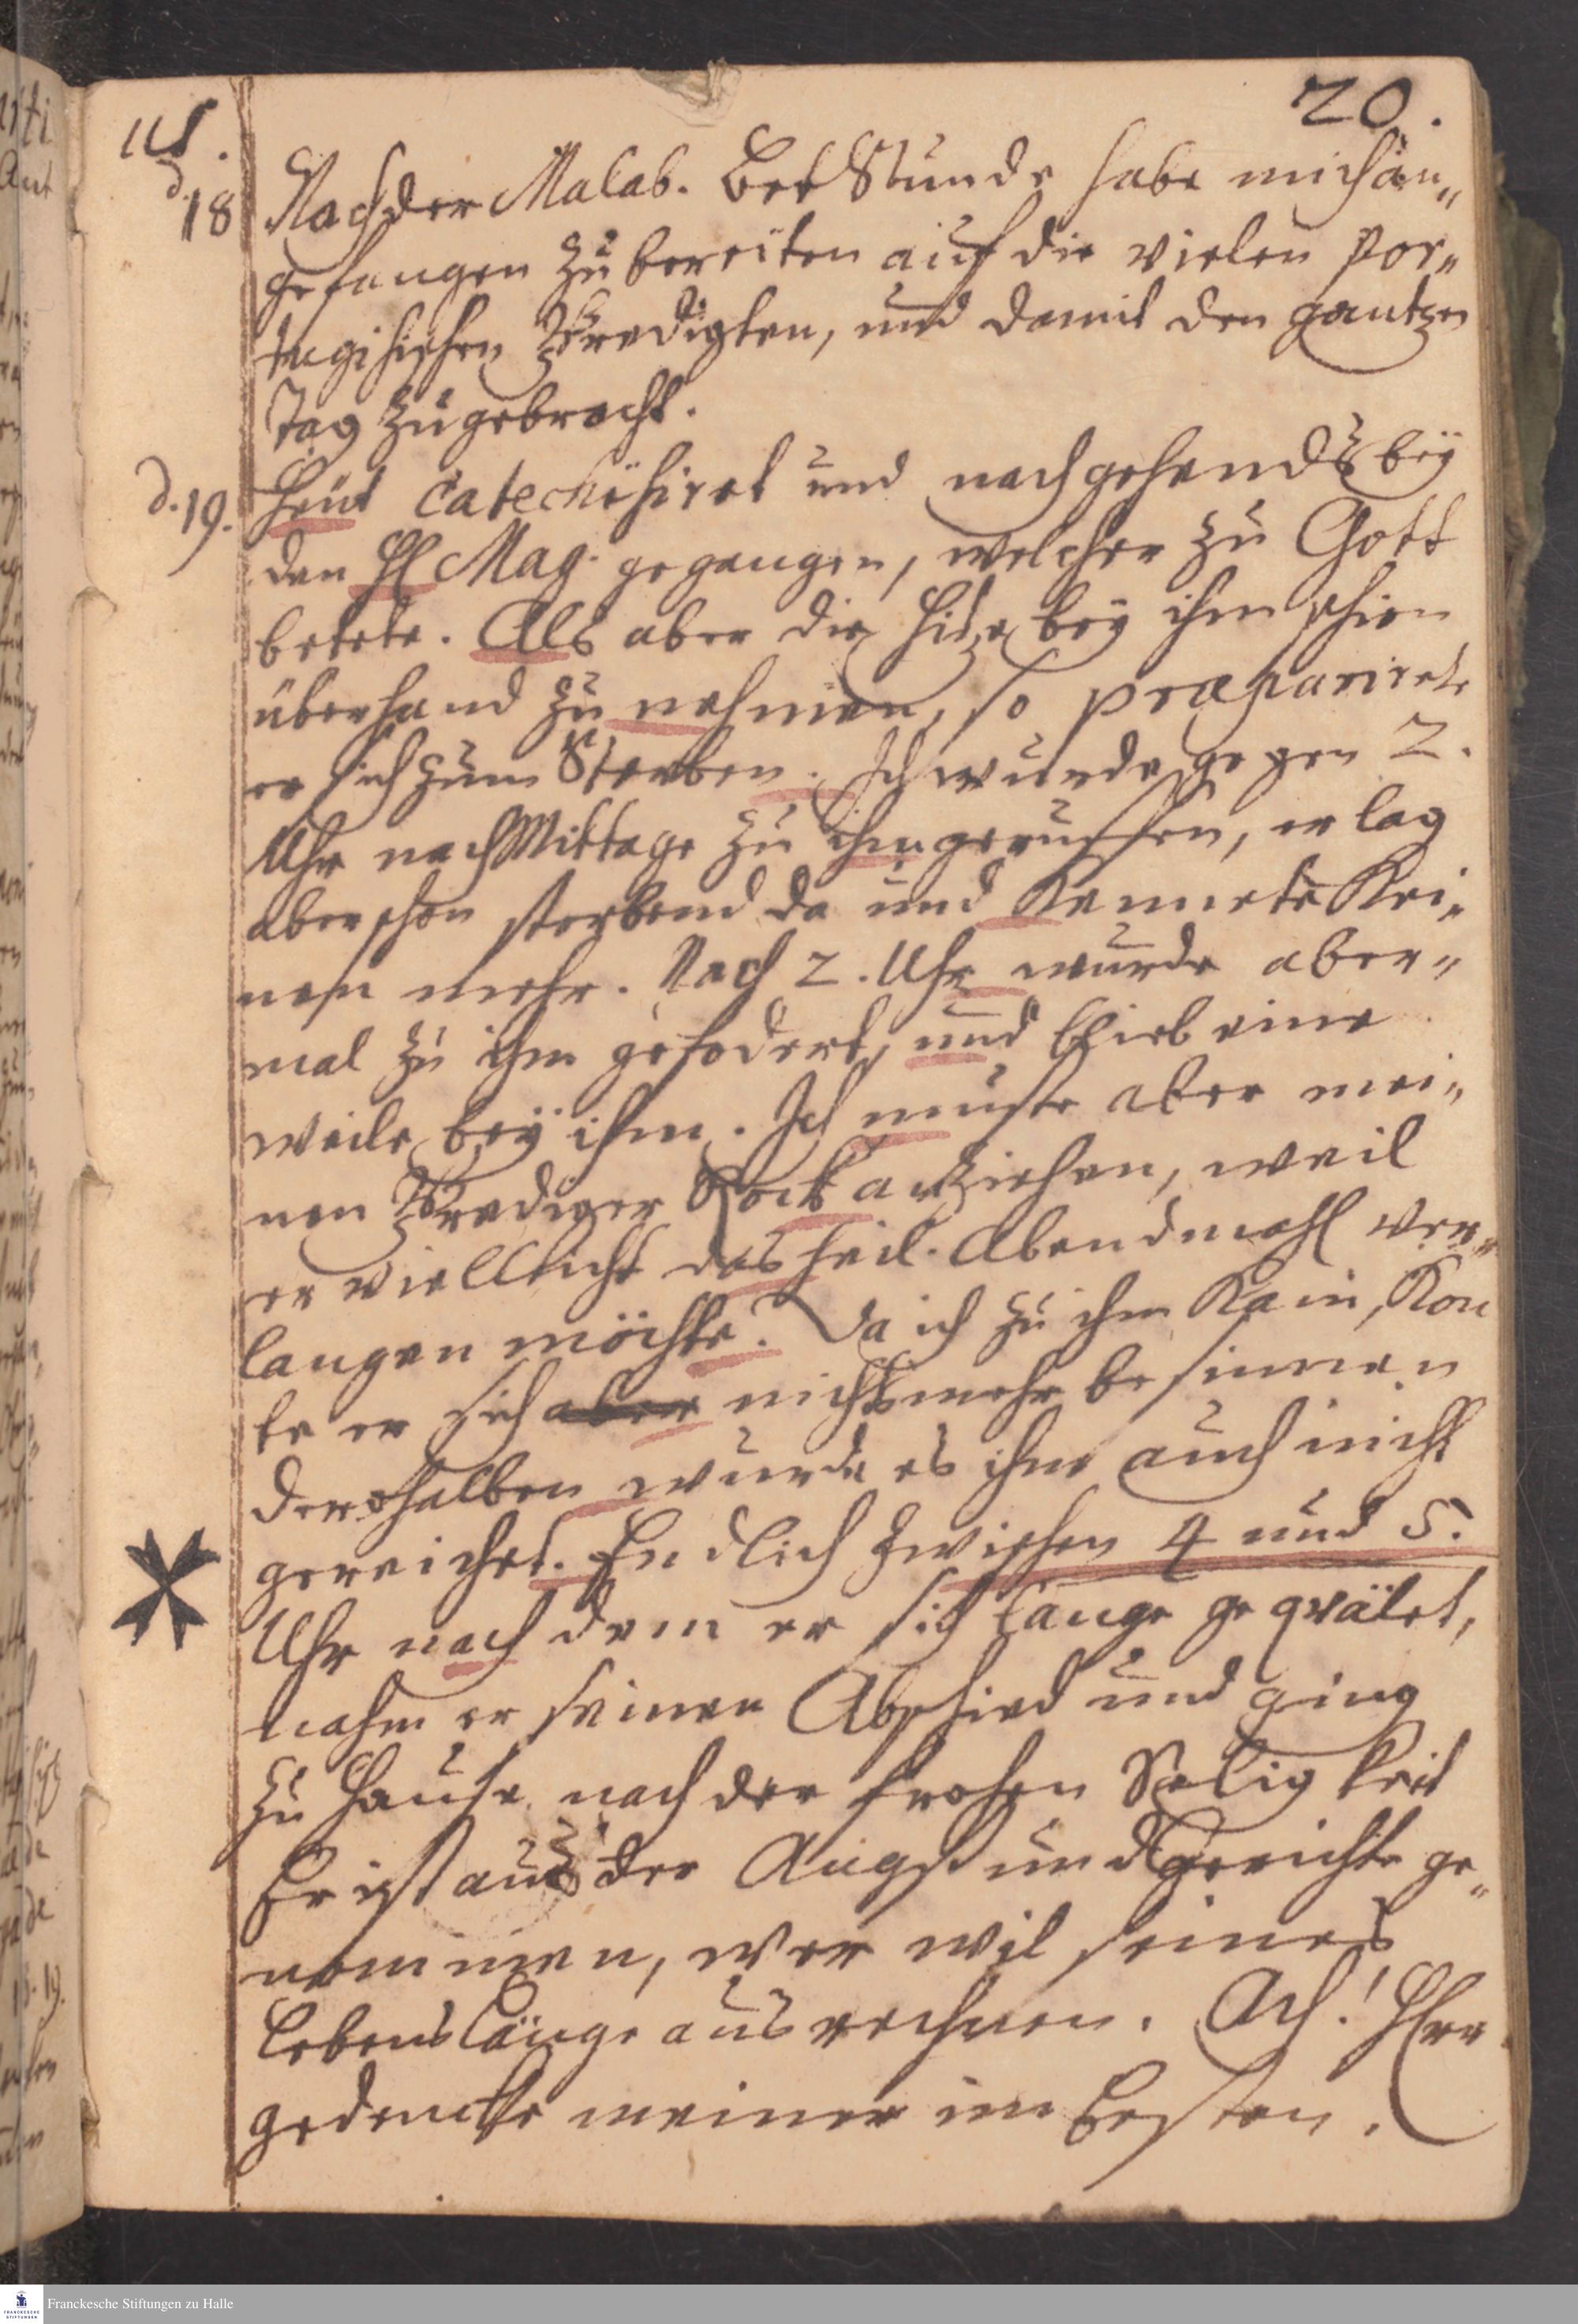 20.
us.
d. 18 Nach der Malab. Bet Stunde habe mich an„
gefangen zu bereiten auf die vielen Por„
tugisischen Predigten, und damit den gantzen
Tag zu gebracht.
d. 19. Heut Catechisiret und nachgehends bey
den H Mag. gegangen, welcher zu Gott
betete. Als aber die Hitze bey ihm schien
überhand zu nehmen, so præparirete
er sich zum Sterben. Ich wurde gegen 2.
Uhr nach Mittage zu ihm geruffen, er lag
aber schon sterbend da und Kennete Kei„
nen mehr. Nach 2. Uhr wurde aber„
mal zu ihm gefodert, und blieb eine
weile bey ihm. Ich muste aber mei„
nen Prediger Rock anziehen, weil
er viellleicht das heil. Abendmahl ver„
langen möchte. Da ich zu ihm Kam, Kon
te er sich aber nichts mehr besinnen
derohalben wurde es ihm auch nicht
gereichet. Endlich zwischen 4 und 5.
Uhr nach dem er sich lange gequälet,
nahm er seinen Abschied und ging
zu Hause nach der frohen Seligkeit
Er ist aus der Angst und Gerichte ge„
nommen, wer wil seines
Lebens länge aus rechnen. Ach! HErr
gedencke meiner im Besten.
Franckesche Stiftungen zu Halle